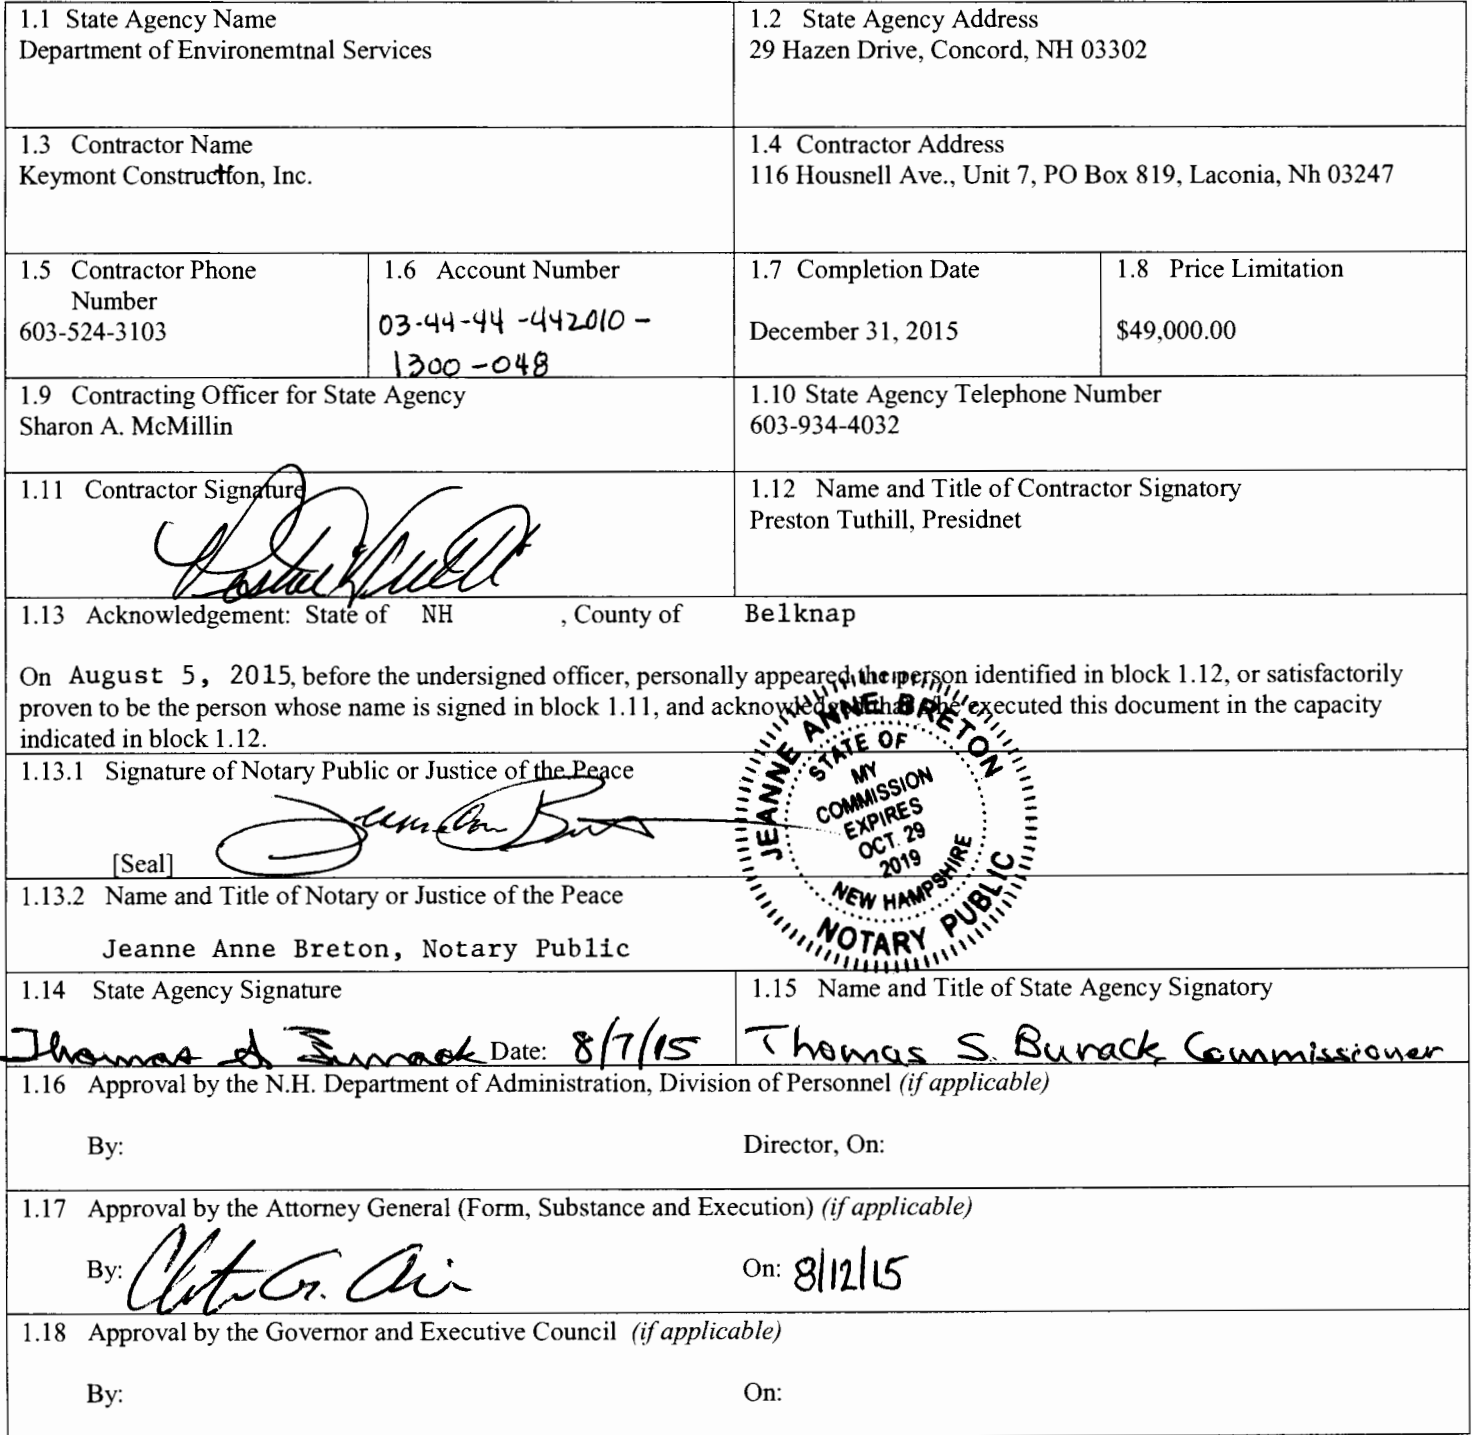 1.1 State Agency Name
Department of Environemtnal Services
1.2 State Agency Address
29 Hazen Drive, Concord, NH 03302
1.3 Contractor Name
Keymont Construction, Inc.
1.4 Contractor Address
116 Housnell Ave., Unit 7, PO Box 819, Laconia, Nh 03247
1.5 Contractor Phone
Number
603-524-3103
1.6 Account Number
03-44-44-442010-
1300-048
1.7 Completion Date
December 31, 2015
1.8 Price Limitation
$49,000.00
1.9 Contracting Officer for State Agency
Sharon A. McMillin
1.10 State Agency Telephone Number
603-934-4032
1.11 Contractor Signature
1.12 Name and Title of Contractor Signatory
Preston Tuthill, Presidnet
1.13 Acknowledgement: State of NH , County of Belknap
On August 5, 2015, before the undersigned officer, personally appeared the person identified in block 1.12, or satisfactorily
proven to be the person whose name is signed in block 1.11, and acknowledged that s/he executed this document in the capacity
indicated in block 1.12.
1.13.1 Signature of Notary Public or Justice of the Peace
[Seal]
JEANNE ANNE BRETON
STATE OF
MY
COMMISSION
EXPIRES
OCT. 29
2019
NEW HAMPSHIRE
NOTARY PUBLIC
1.13.2 Name and Title of Notary or Justice of the Peace
Jeanne Anne Breton, Notary Public
1.14 State Agency Signature
Thomas S Burack Date: 8/7/15
1.15 Name and Title of State Agency Signatory
Thomas S. Burack Commissioner
1.16 Approval by the N.H. Department of Administration, Division of Personnel (if applicable)
By: Director, On:
1.17 Approval by the Attorney General (Form, Substance and Execution) (if applicable)
By: On: 8/12/15
1.18 Approval by the Governor and Executive Council (if applicable)
By: On: